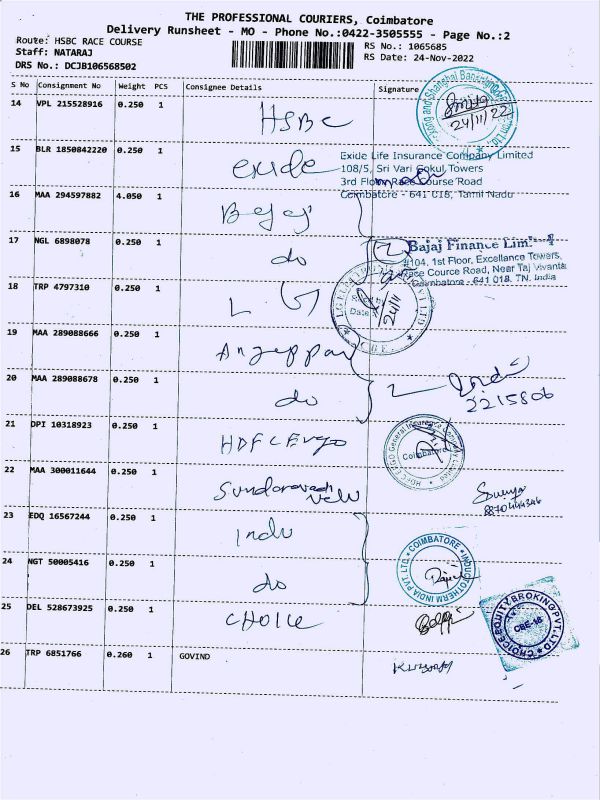 THE PROFESSIONAL COURIERS, Coimbatore
Delivery Runsheet - MO - Phone No.:0422-3505555 - Page No.:2
Route: HSBC RACE COURSE
RS No.: 1065685
Staff: NATARAJ
RS Date: 24-Nov-2022
DRS No.: DCJB106568502
S No Consignment No Weight PCS Consignee Details Signature
14 VPL 215528916 0.250 1 HSBC
24/11/22
15 BLR 1850842220 0.250 1 exide
Exide Life Insurance Company Limited
108/5, Sri Vari Gokul Towers
3rd Floor Race Course Road
Coimbatore - 641 018, Tamil Nadu
16 MAA 294597882 4.050 1 Bajaj
17 NGL 6898078 0.250 1 do
Bajaj Finance Lim
#104, 1st Floor, Excellance Towers,
Race Cource Road, Near Taj Vivanta
Coimbatore - 641 018. TN. India
18 TRP 4797310 0.250 1 L G
24/11
19 MAA 289088666 0.250 1 Anjappar
20 MAA 289088678 0.250 1 do
2215806
21 DPI 10318923 0.250 1 HDFC Ergo
HDFC ERGO General Insurance Company Limited
Coimbatore
22 MAA 300011644 0.250 1
8870444346
23 EDQ 16567244 0.250 1 Indu
24 NGT 50005416 0.250 1 do
COIMBATORE
INDUCTOTHERM INDIA PVT. LTD.
25 DEL 528673925 0.250 1 CHOICE
CHOICE EQUITY BROKING PVT. LTD
CBE-18
26 TRP 6851766 0.260 1 GOVIND